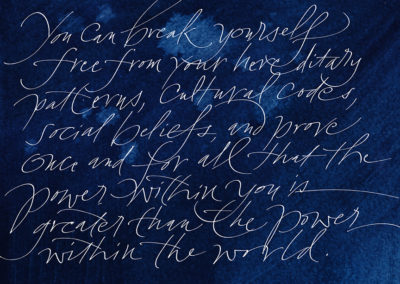 You can break yourself
free from your here ditary
patterns, cultural codes,
social beliefs, and prove
once and for all that the
power within you is
greater than the power
within the world.